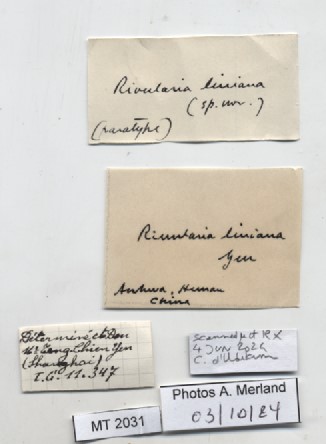 Rivularia liuiana
(sp. nov.)
(paratype)
Rivularia liuiana
Yen
Anhwa, Hunan
China
Déterminé et Don
Mr Teng-Chien Yen
(Shanghai)
I.G. 11.347
scanned pet RX
4 Jun 2024
MT 2031
Photos A. Merland
03/10/24